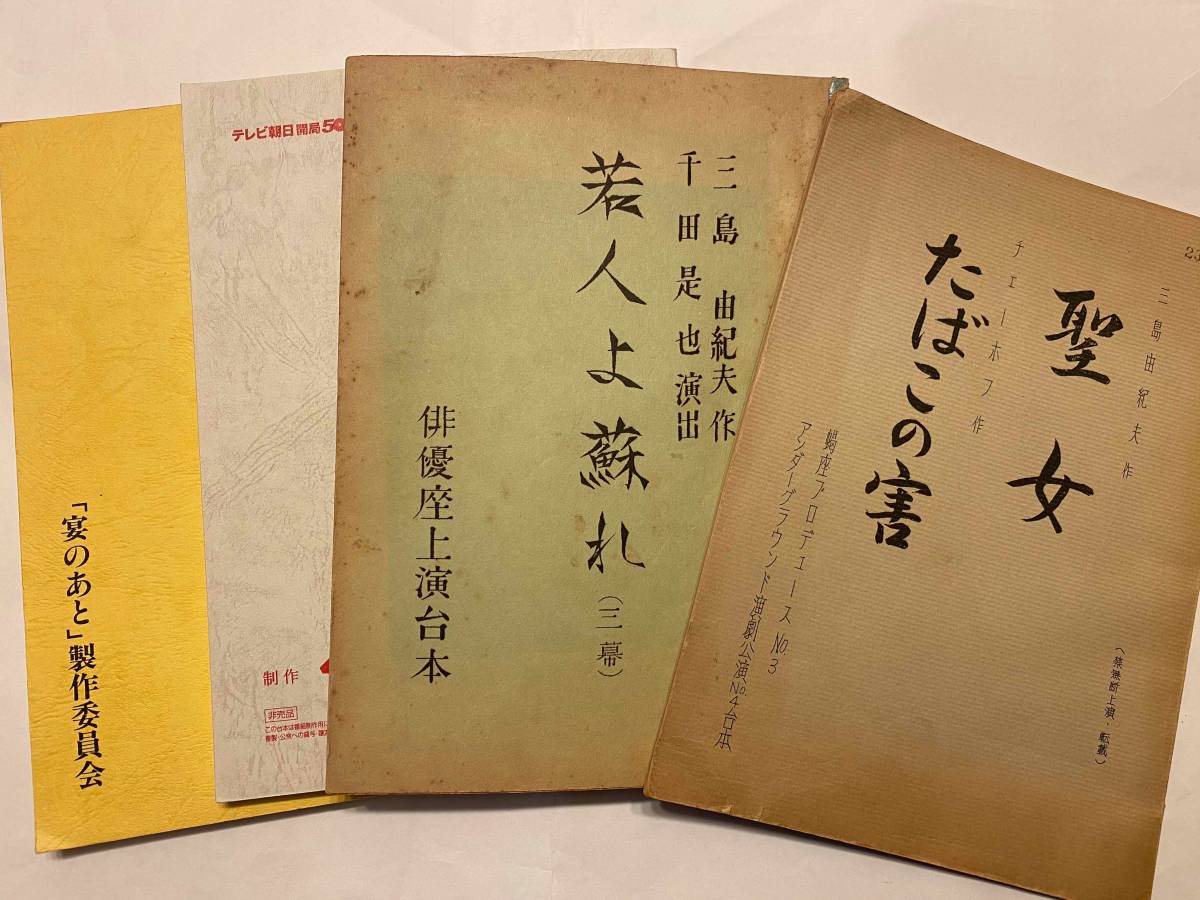 「宴のあと」製作委員会
テレビ朝日開局50
制作
非売品
この台本は番組制作用に
複製・公衆への貸与・譲
三島 由紀夫作
千田是也演出
若人よ蘇れ
(三幕)
俳優座上演台本
23
三島由紀夫作
聖女
チェーホフ作
たばこの害
蝎座プロデュースNo.3
アンダーグラウンド演劇公演No.4台本
(禁無断上演・転載)